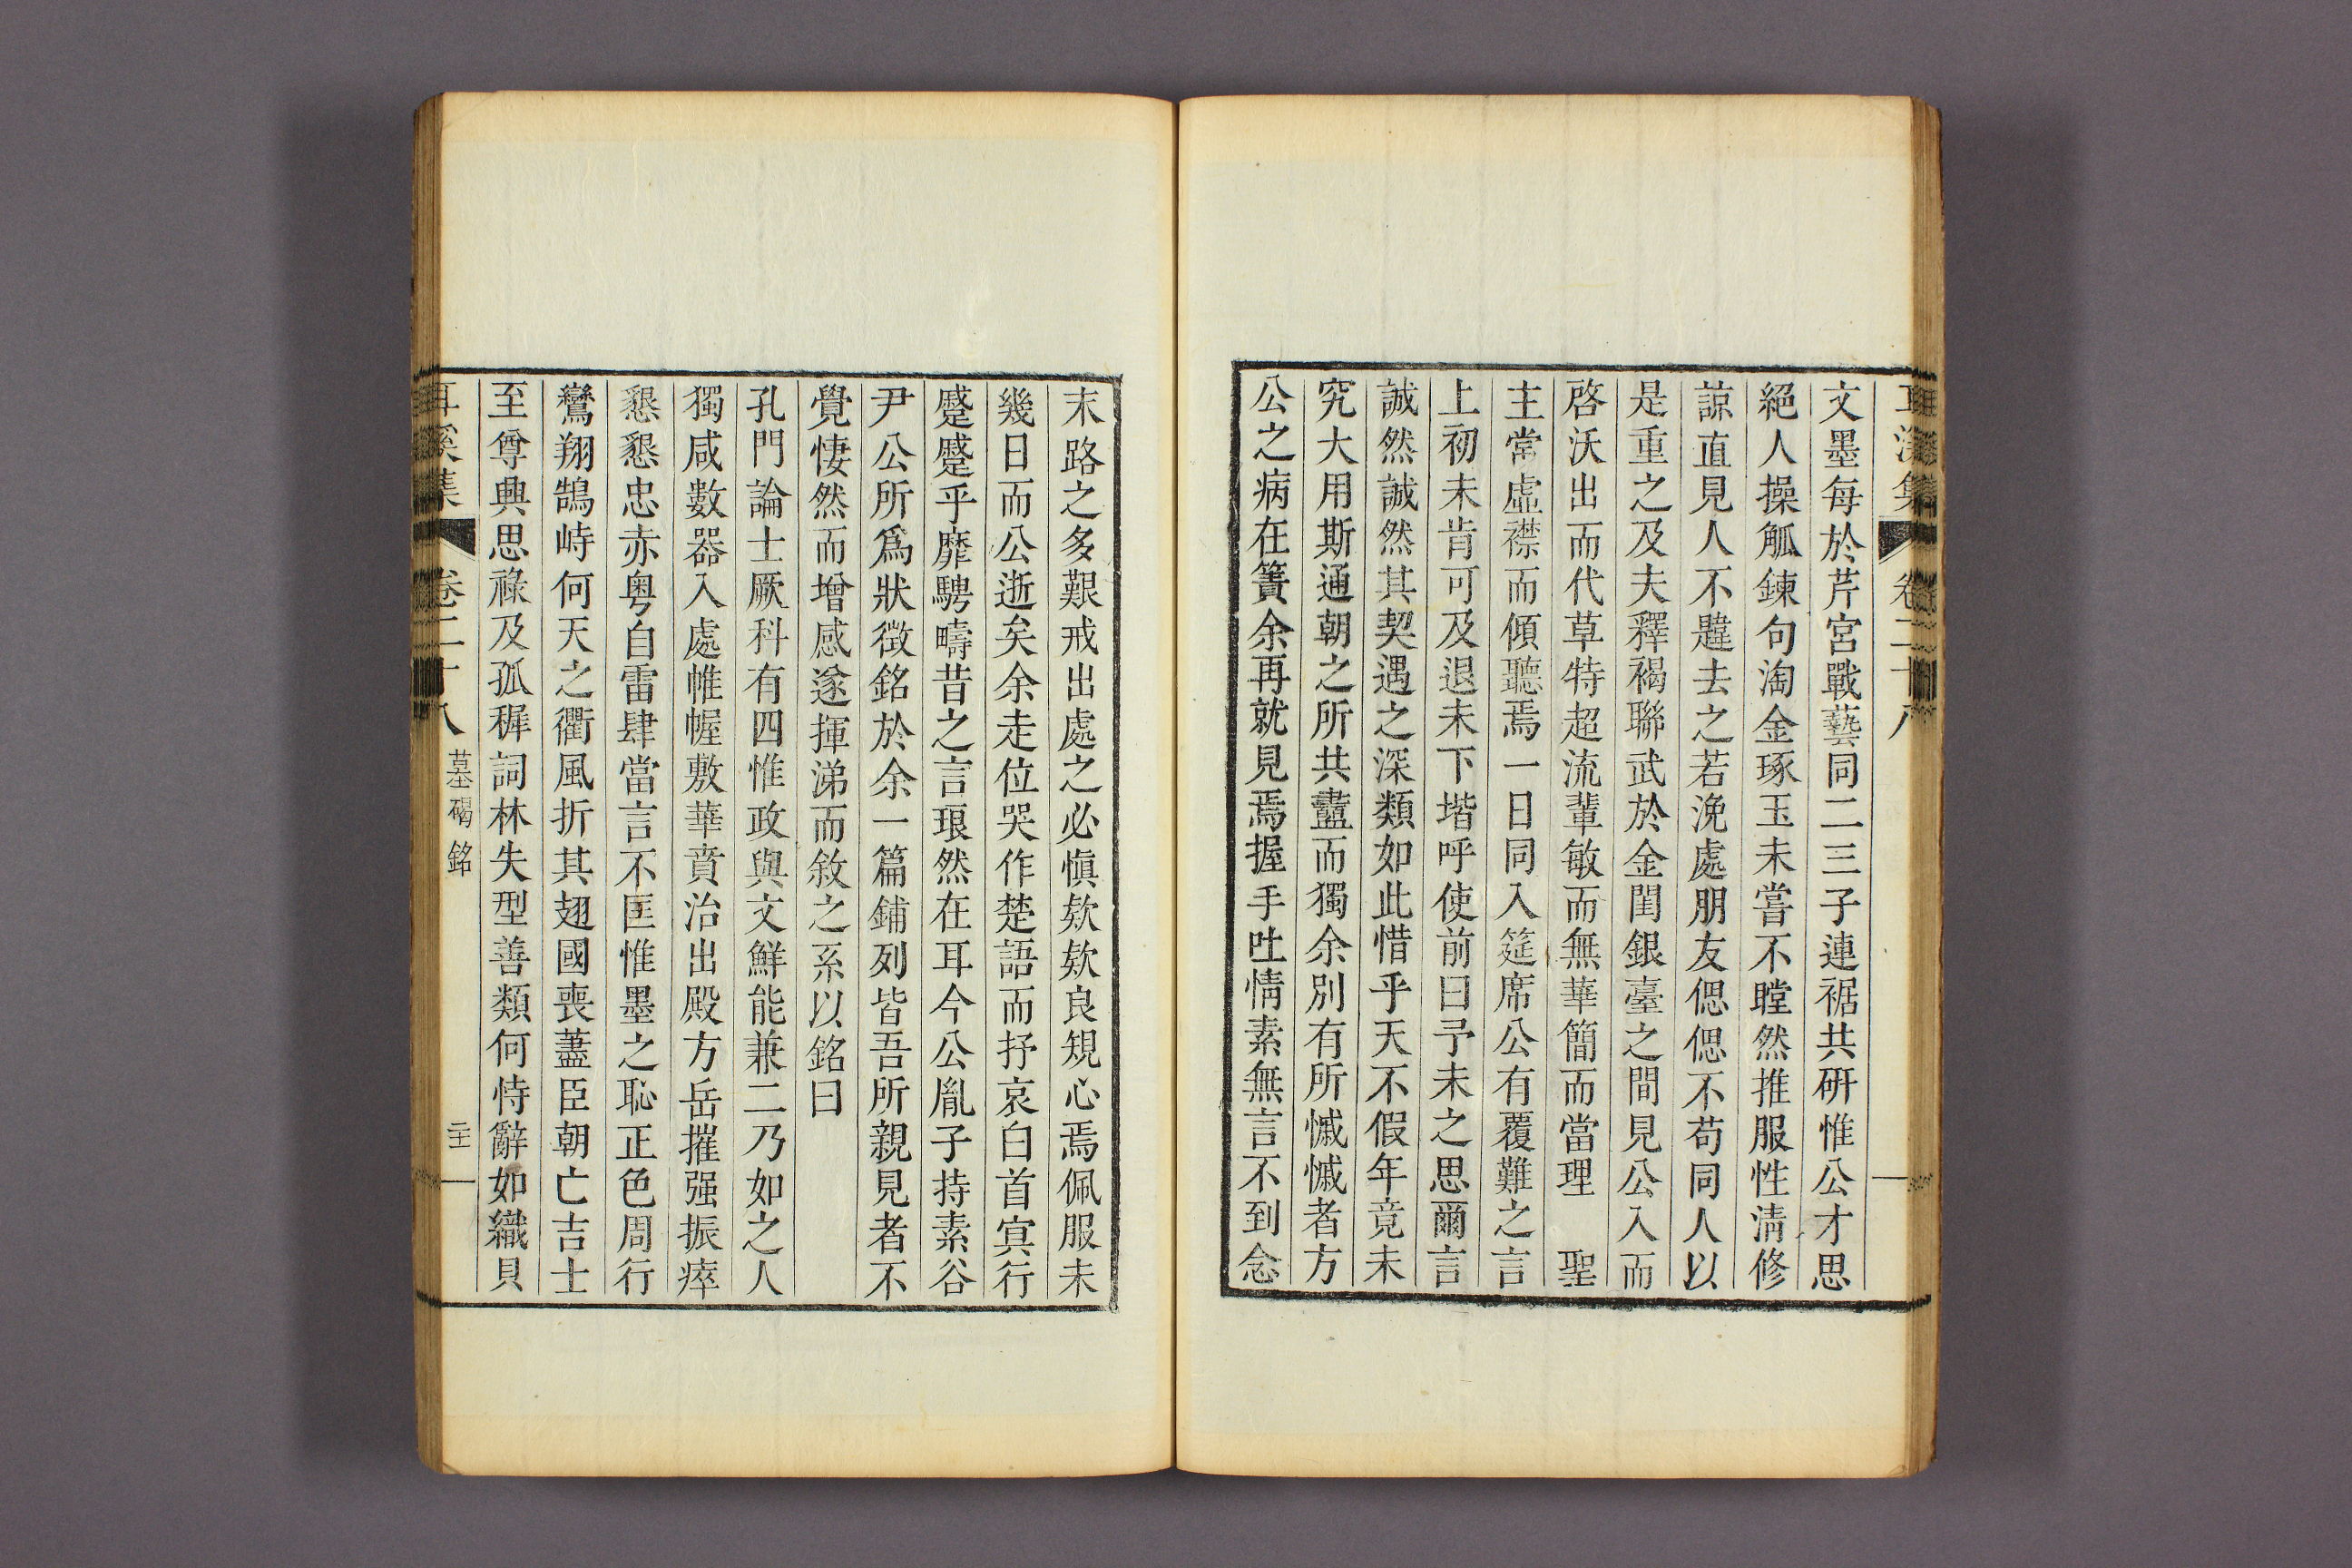 耳溪集 卷二十八
文墨每於芹宮戰藝同二三子連裾共硏惟公才思
絕人操觚鍊句淘金琢玉未嘗不瞠然推服性淸修
諒直見人不韙去之若浼處朋友偲偲不苟同人以
是重之及夫釋褐聯武於金閨銀臺之間見公入而
啓沃出而代草特超流輩敏而無華簡而當理　聖
主常虛襟而傾聽焉一日同入筵席公有覆難之言
上初未肯可及退未下堦呼使前曰予未之思爾言
誠然誠然其契遇之深類如此惜乎天不假年竟未
究大用斯通朝之所共衋而獨余別有所慽慽者方
公之病在簀余再就見焉握手吐情素無言不到念
末路之多艱戒出處之必愼欸欸良規心焉佩服未
幾日而公逝矣余走位哭作楚語而抒哀白首冥行
蹙蹙乎靡騁疇昔之言琅然在耳今公胤子持素谷
尹公所爲狀徵銘於余一篇鋪列皆吾所親見者不
覺悽然而增感遂揮涕而敘之系以銘曰
孔門論士厥科有四惟政與文鮮能兼二乃如之人
獨咸數器入處帷幄敷華賁治出殿方岳摧强振瘁
懇懇忠赤粤自雷肆當言不匡惟墨之恥正色周行
鸞翔鵠峙何天之衢風折其翅國喪藎臣朝亡吉士
至尊興思祿及孤穉詞林失型善類何恃辭如織貝
耳溪集 卷二十八 墓碣銘 二十一